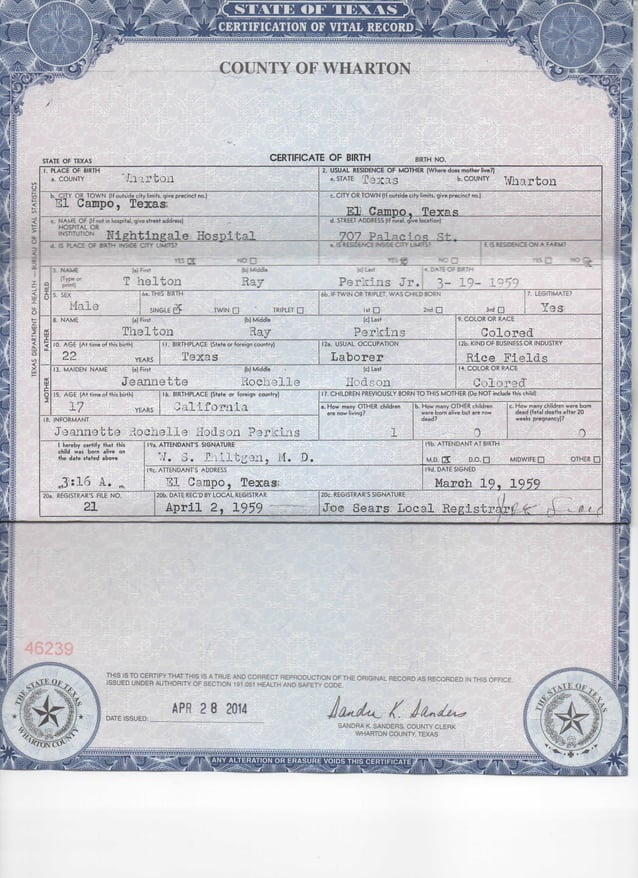 STATE OF TEXAS
CERTIFICATION OF VITAL RECORD
COUNTY OF WHARTON
STATE OF TEXAS CERTIFICATE OF BIRTH BIRTH NO.
TEXAS DEPARTMENT OF HEALTH — BUREAU OF VITAL STATISTICS
1. PLACE OF BIRTH
a. COUNTY Wharton
2. USUAL RESIDENCE OF MOTHER (Where does mother live?)
a. STATE Texas b. COUNTY Wharton
b. CITY OR TOWN (If outside city limits, give precinct no.)
El Campo, Texas
c. CITY OR TOWN (If outside city limits, give precinct no.)
El Campo, Texas
c. NAME OF (If not in hospital, give street address)
HOSPITAL OR
INSTITUTION Nightingale Hospital
d. STREET ADDRESS (If rural, give location)
707 Palacios St.
d. IS PLACE OF BIRTH INSIDE CITY LIMITS?
YES NO
e. IS RESIDENCE INSIDE CITY LIMITS?
YES NO
f. IS RESIDENCE ON A FARM?
YES NO
CHILD
3. NAME (a) First (b) Middle (c) Last
(Type or print) Thelton Ray Perkins Jr.
4. DATE OF BIRTH
3-19-1959
5. SEX
Male
6a. THIS BIRTH
SINGLE X TWIN TRIPLET
6b. IF TWIN OR TRIPLET, WAS CHILD BORN
1st 2nd 3rd
7. LEGITIMATE?
Yes
FATHER
8. NAME (a) First (b) Middle (c) Last
Thelton Ray Perkins
9. COLOR OR RACE
Colored
10. AGE (At time of this birth)
22 YEARS
11. BIRTHPLACE (State or foreign country)
Texas
12a. USUAL OCCUPATION
Laborer
12b. KIND OF BUSINESS OR INDUSTRY
Rice Fields
MOTHER
13. MAIDEN NAME (a) First (b) Middle (c) Last
Jeannette Rochelle Hodson
14. COLOR OR RACE
Colored
15. AGE (At time of this birth)
17 YEARS
16. BIRTHPLACE (State or foreign country)
California
17. CHILDREN PREVIOUSLY BORN TO THIS MOTHER (Do NOT include this child)
a. How many OTHER children are now living?
1
b. How many OTHER children were born alive but are now dead?
0
c. How many children were born dead (fetal deaths after 20 weeks pregnancy)?
0
18. INFORMANT
Jeannette Rochelle Hodson Perkins
I hereby certify that this
child was born alive on
the date stated above
3:16 A. m.
19a. ATTENDANT'S SIGNATURE
W. S. M. D.
19b. ATTENDANT AT BIRTH
M.D. X D.O. MIDWIFE OTHER
19c. ATTENDANT'S ADDRESS
El Campo, Texas
19d. DATE SIGNED
March 19, 1959
20a. REGISTRAR'S FILE NO.
21
20b. DATE REC'D BY LOCAL REGISTRAR
April 2, 1959
20c. REGISTRAR'S SIGNATURE
Joe Sears Local Registrar
46239
THIS IS TO CERTIFY THAT THIS IS A TRUE AND CORRECT REPRODUCTION OF THE ORIGINAL RECORD AS RECORDED IN THIS OFFICE.
ISSUED UNDER AUTHORITY OF SECTION 191.051 HEALTH AND SAFETY CODE.
DATE ISSUED: APR 28 2014
Sandra K. Sanders
SANDRA K. SANDERS, COUNTY CLERK
WHARTON COUNTY, TEXAS
THE STATE OF TEXAS
WHARTON COUNTY
THE STATE OF TEXAS
ANY ALTERATION OR ERASURE VOIDS THIS CERTIFICATE